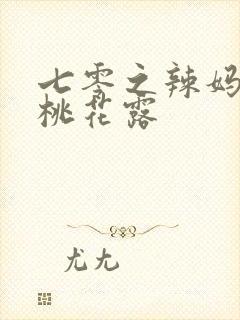 七零之辣妈
桃花露
尤尤